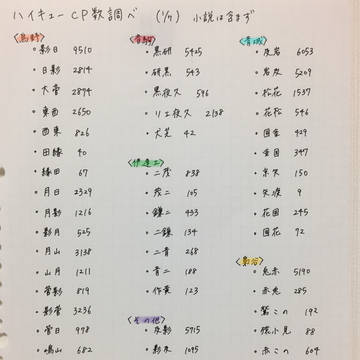 ハイキューCP数調べ (1/9) 小説は含まず
<烏野>
・影日 9510
・日影 2894
・大菅 2894
・東西 2650
・西東 826
・田縁 40
・縁田 67
・月日 2329
・月影 1216
・影月 525
・月山 3138
・山月 1211
・菅影 819
・影菅 3236
・菅日 998
・鳴山 682
<音駒>
・黒研 5425
・研黒 543
・黒夜久 596
・リエ夜久 2138
・犬芝 42
<伊達工>
・二茂 838
・茂二 105
・鎌二 433
・二鎌 134
・二青 268
・青二 188
・作業 123
<その他>
・及影 5715
・影及 1095
<青城>
・及岩 6053
・岩及 5209
・松花 1537
・花松 546
・国金 429
・金国 347
・京矢 150
・矢渡 9
・花国 245
・国花 72
<梟谷>
・兎赤 5190
・赤兎 285
・鷲この 192
・猿小見 88
・赤この 604